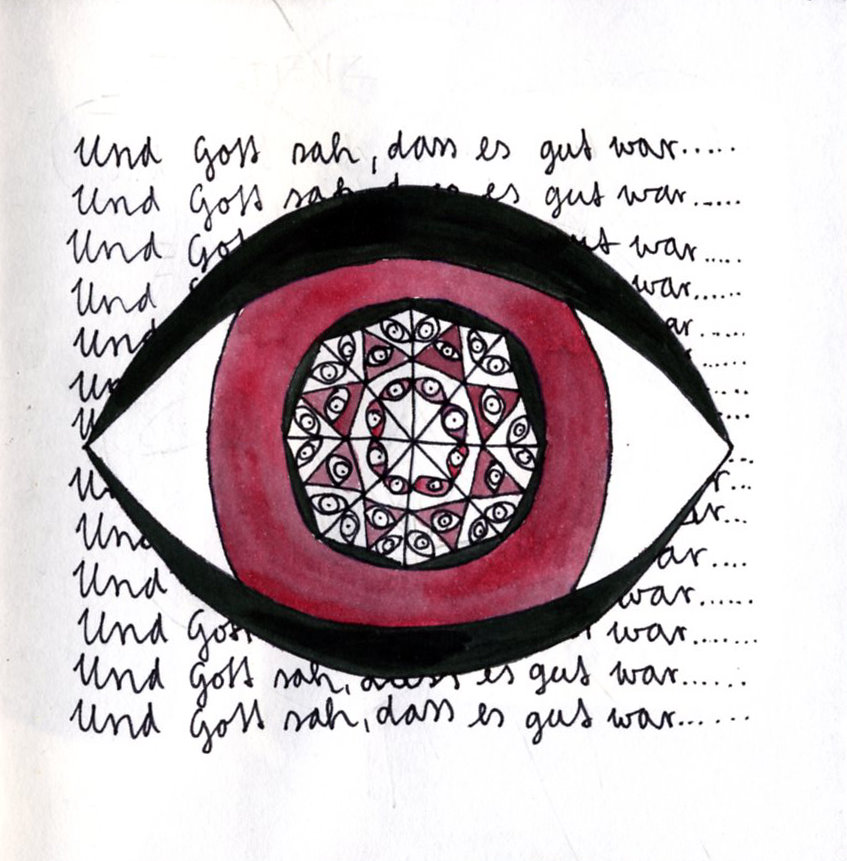 Und Gott sah, dass es gut war.....
Und Gott sah, dass es gut war.....
Und war.....
Und war......
Und
Und
Und war......
Und Gott war.......
Und Gott sah, dass es gut war......
Und Gott sah, dass es gut war......